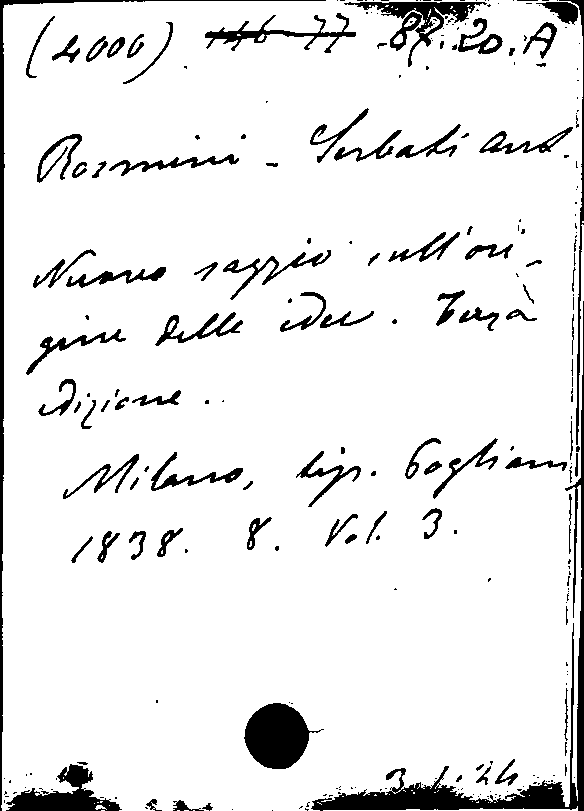 (4000) 146-77 87.20.A
Rosmini - Serbati Ant.
Nuovo saggio sull'ori-
gine delle idee. Terza
edizione.
Milano, tip. Pogliani,
1838. 8. Vol. 3.
3.1.24